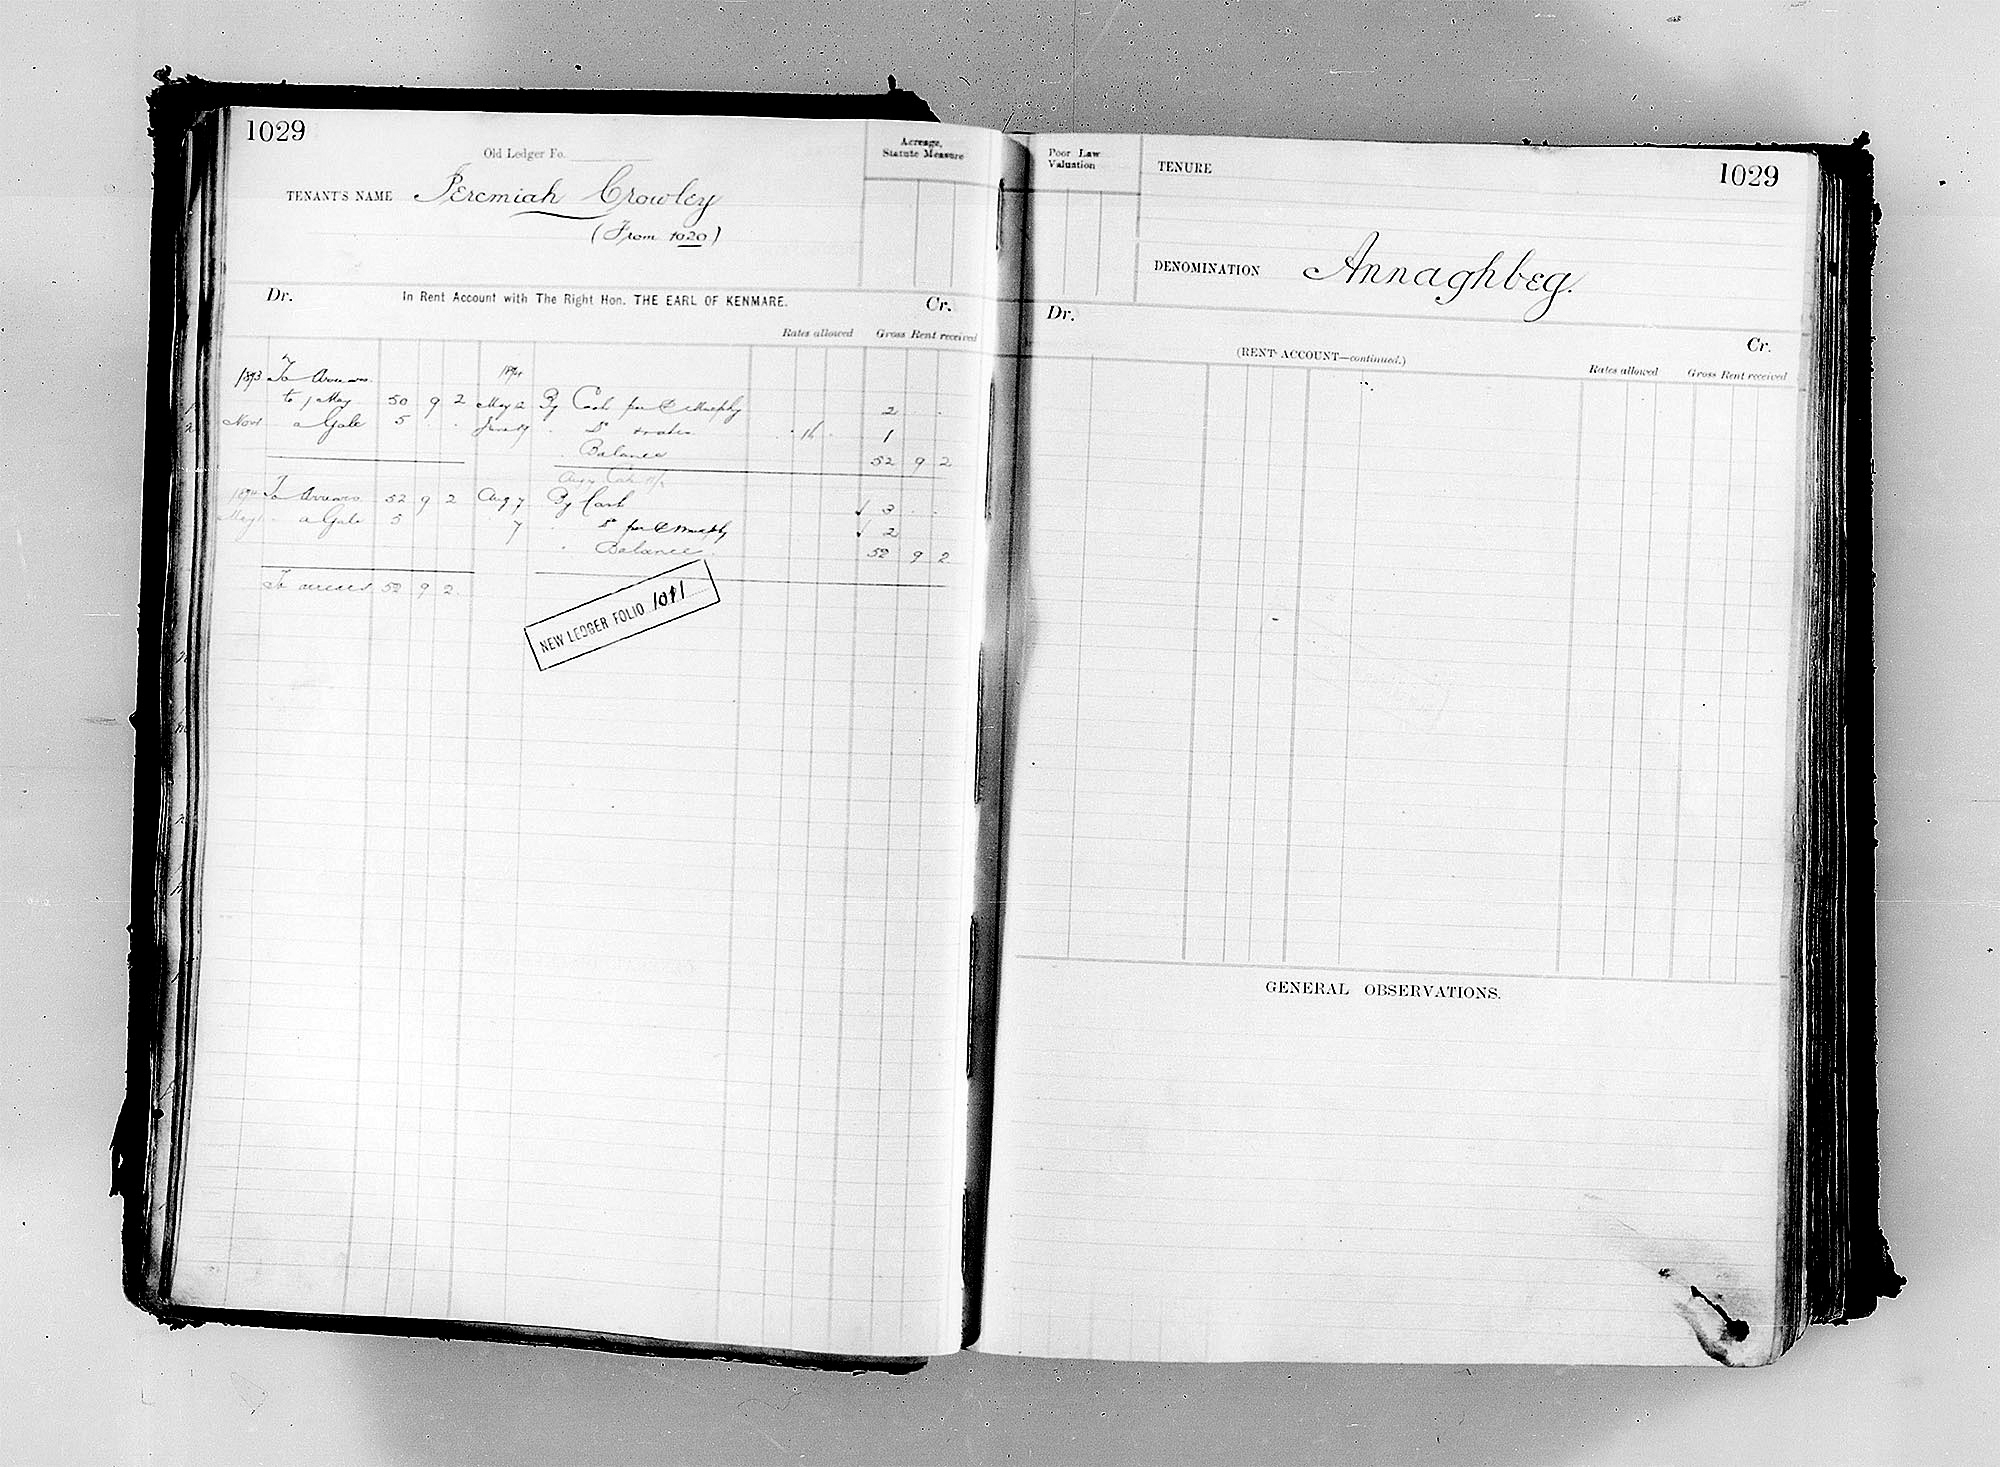 1029
Old Ledger Fo.
TENANT'S NAME Jeremiah Crowley
(From 1020)
Acreage,
Statute Measure
Dr. In Rent Account with The Right Hon. THE EARL OF KENMARE. Cr.
Rates allowed Gross Rent received
1893 To Arrears 1894
to 1 May 50 9 2 May 12 By Cash per C Murphy 2 . .
Novr a Gale 5 . . June 19 " Do & rates 16 1
" Balance 52 9 2
1894 To Arrears 52 9 2 Aug 7 By Cash ✓ 3 . .
May 1 a Gale 5 7 " Do per C Murphy ✓ 2
" Balance 52 9 2
To arrears 52 9 2
NEW LEDGER FOLIO
Poor Law
Valuation
TENURE
1029
DENOMINATION Annaghbeg.
Dr. Cr.
(RENT ACCOUNT—continued.)
Rates allowed Gross Rent received
GENERAL OBSERVATIONS.